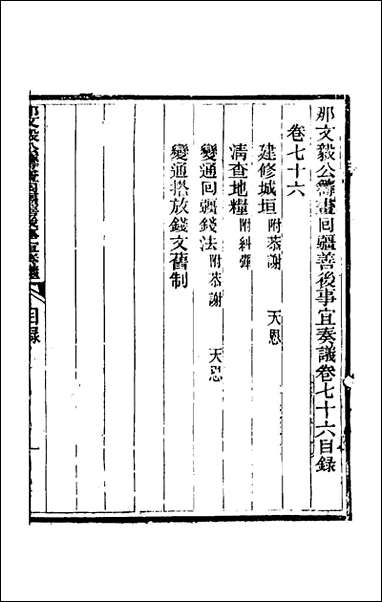 那文毅公籌畫回疆善後事宜奏議卷七十六目錄
卷七十六
建修城垣 附恭謝 天恩
清查地糧 附糾彈
變通回疆錢法 附恭謝 天恩
變通搭放錢文舊制
那文毅公籌畫回疆善後事宜奏議 目錄